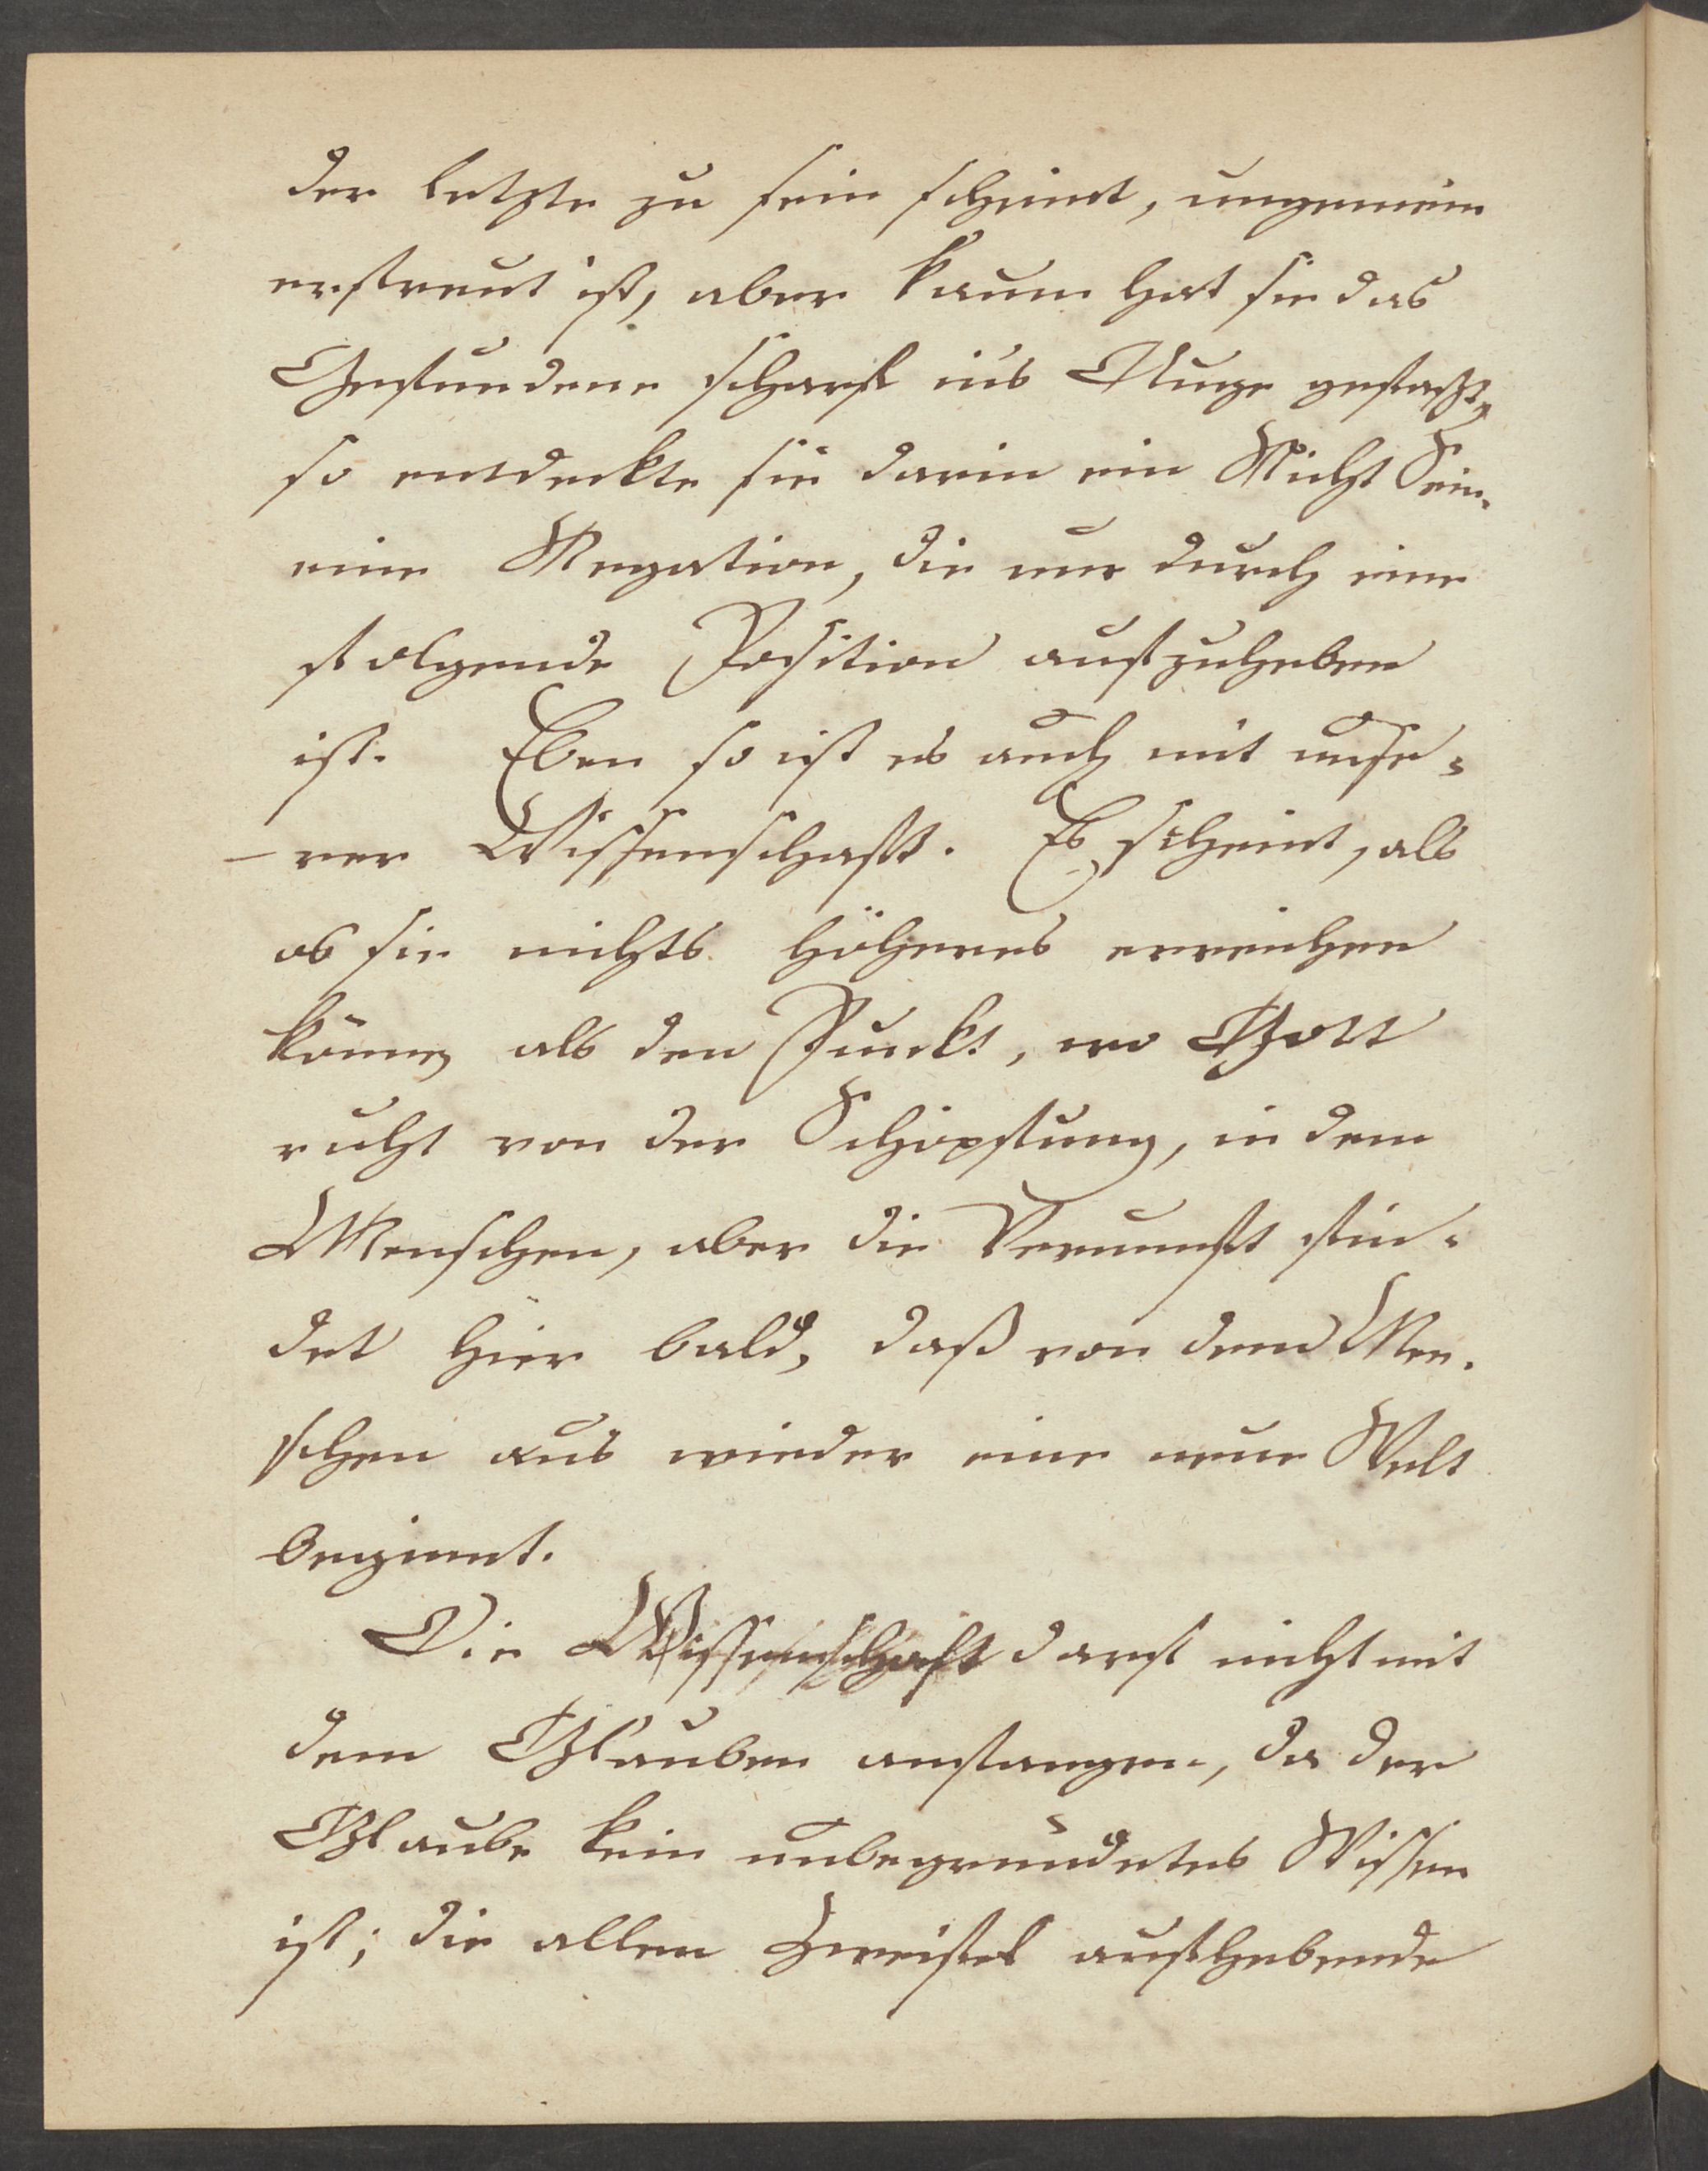 der letzte zu sein scheint, ungemein
erfreut ist, aber kaum hat sie das
Gefundene scharf ins Auge gefaßt,
so entdeckte sie darin ein Nicht Sein,
eine Negation, die nur durch eine
folgende Position aufzuheben
ist. Eben so ist es auch mit unse-
rer Wissenschaft. Es scheint, als
ob sie nichts höheres erreichen
könne, als den Punkt, wo Gott
ruht von der Schöpfung, in dem
Menschen, aber die Vernunft fin-
det hier bald, daß von dem Men-
schen aus wieder eine neue Welt
beginnt.
Die Wissenschaft darf nicht mit
dem Glauben anfangen, da der
Glaube kein unbegründetes Wissen
ist; die allen Zweifel aufhebende